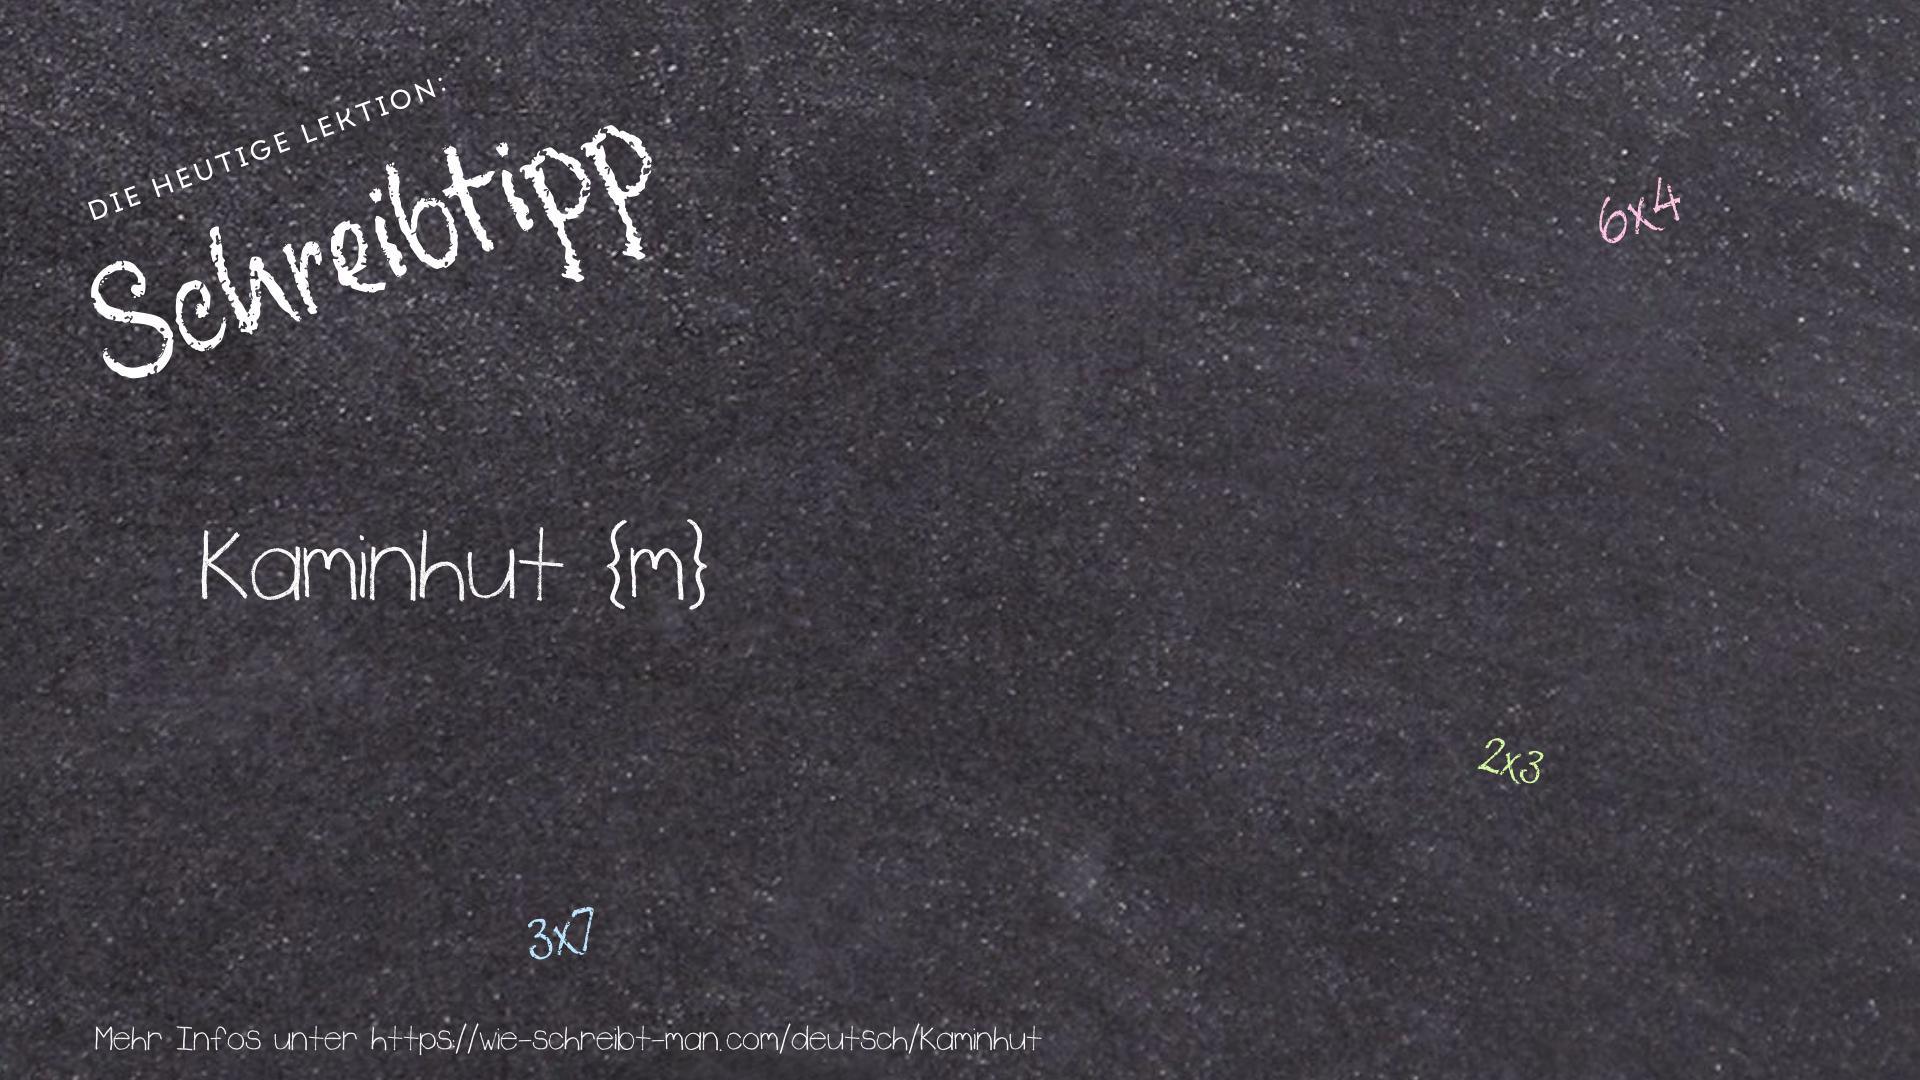 DIE HEUTIGE LEKTION:
Schreibtipp
6x4
Kaminhut {m}
2x3
3x7
Mehr Infos unter https://wie-schreibt-man.com/deutsch/Kaminhut